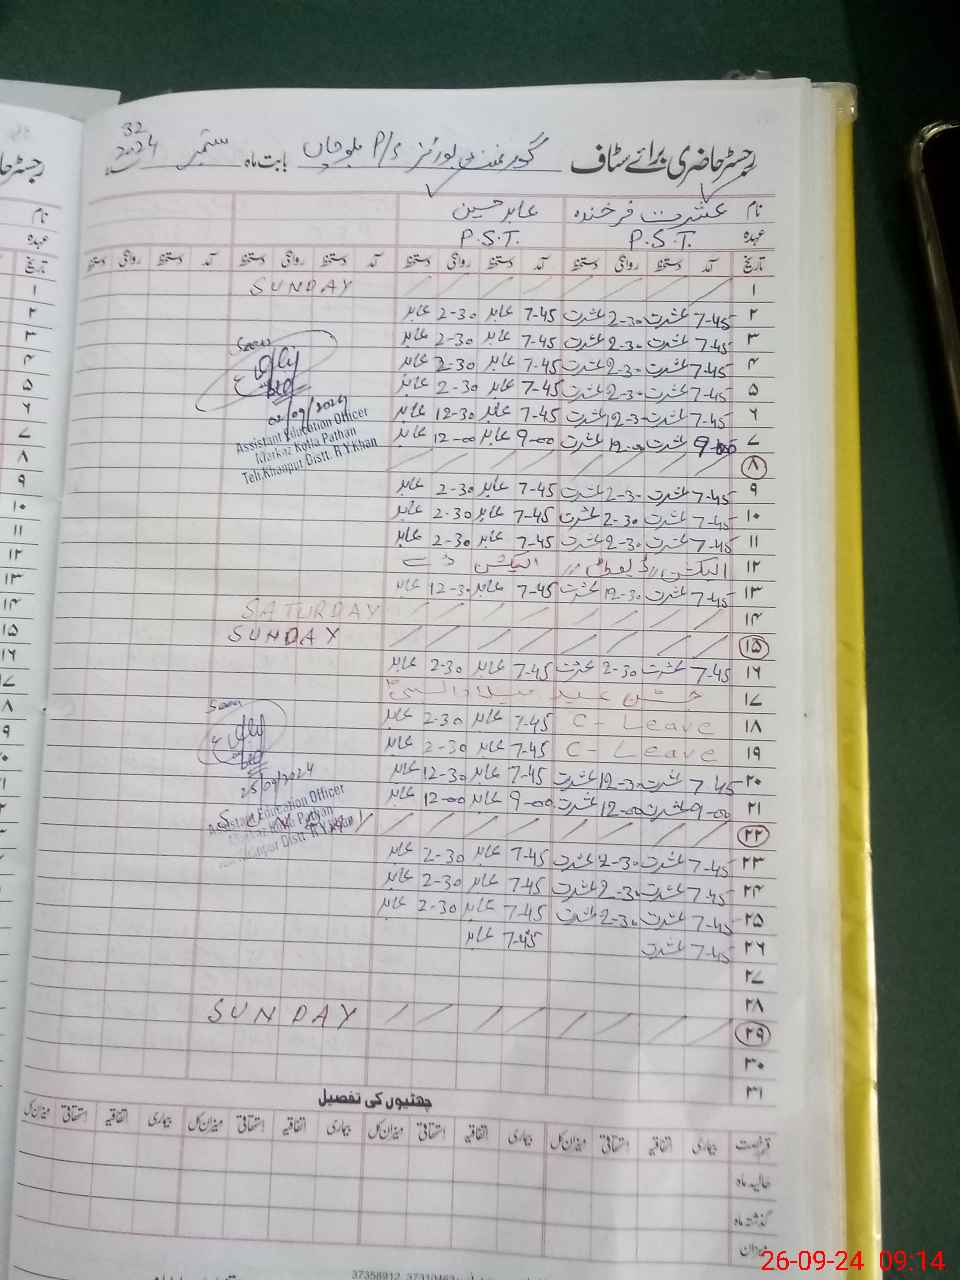 32
رجسٹر حاضری برائے سٹاف گورنمنٹ بوائز P/S بابت ماہ ستمبر 2024
نام عشرت فرخندہ عابد حسین
عہدہ P.S.T. P.S.T.
تاریخ آمد دستخط روانگی دستخط آمد دستخط روانگی دستخط آمد دستخط روانگی دستخط آمد دستخط روانگی دستخط
۱ SUNDAY
۲ 7-45 عشرت 2-30 عشرت 7-45 عابد 2-30 عابد
۳ 7-45 عشرت 2-30 عشرت 7-45 عابد 2-30 عابد
۴ 7-45 عشرت 2-30 عشرت 7-45 عابد 2-30 عابد
۵ 7-45 عشرت 2-30 عشرت 7-45 عابد 2-30 عابد
۶ 7-45 عشرت 12-30 عشرت 7-45 عابد 12-30 عابد
۷ 9-00 عشرت 12-00 عشرت 9-00 عابد 12-00 عابد
Seen
02/09/2024
Assistant Education Officer
Markaz Kotla Pathan
Teh.Khanpur Distt. R.Y.Khan
۸
۹ 7-45 عشرت 2-30 عشرت 7-45 عابد 2-30 عابد
۱۰ 7-45 عشرت 2-30 عشرت 7-45 عابد 2-30 عابد
۱۱ 7-45 عشرت 2-30 عشرت 7-45 عابد 2-30 عابد
۱۲ الیکشن ڈیوٹی الیکشن
۱۳ 7-45 عشرت 12-30 عشرت 7-45 عابد 12-30 عابد
۱۴ SATURDAY
۱۵ SUNDAY
۱۶ 7-45 عشرت 2-30 عشرت 7-45 عابد 2-30 عابد
۱۷ جشن عید میلاد النبیؐ
۱۸ C-Leave 7-45 عابد 2-30 عابد
۱۹ C-Leave 7-45 عابد 2-30 عابد
۲۰ 7-45 عشرت 12-30 عشرت 7-45 عابد 12-30 عابد
۲۱ 9-00 عشرت 12-00 عشرت 9-00 عابد 12-00 عابد
Seen
25/09/2024
Assistant Education Officer
Markaz Kotla Pathan
Teh.Khanpur Distt. R.Y.Khan
۲۲
۲۳ 7-45 عشرت 2-30 عشرت 7-45 عابد 2-30 عابد
۲۴ 7-45 عشرت 2-30 عشرت 7-45 عابد 2-30 عابد
۲۵ 7-45 عشرت 2-30 عشرت 7-45 عابد 2-30 عابد
۲۶ 7-45 عشرت 7-45 عابد
۲۷
۲۸
۲۹ SUNDAY
۳۰
۳۱
چھٹیوں کی تفصیل
قسم رخصت بیماری اتفاقیہ استحقاقی میزان کل بیماری اتفاقیہ استحقاقی میزان کل بیماری اتفاقیہ استحقاقی میزان کل بیماری اتفاقیہ استحقاقی میزان کل
حالیہ ماہ
گذشتہ ماہ
میزان
26-09-24 09:14